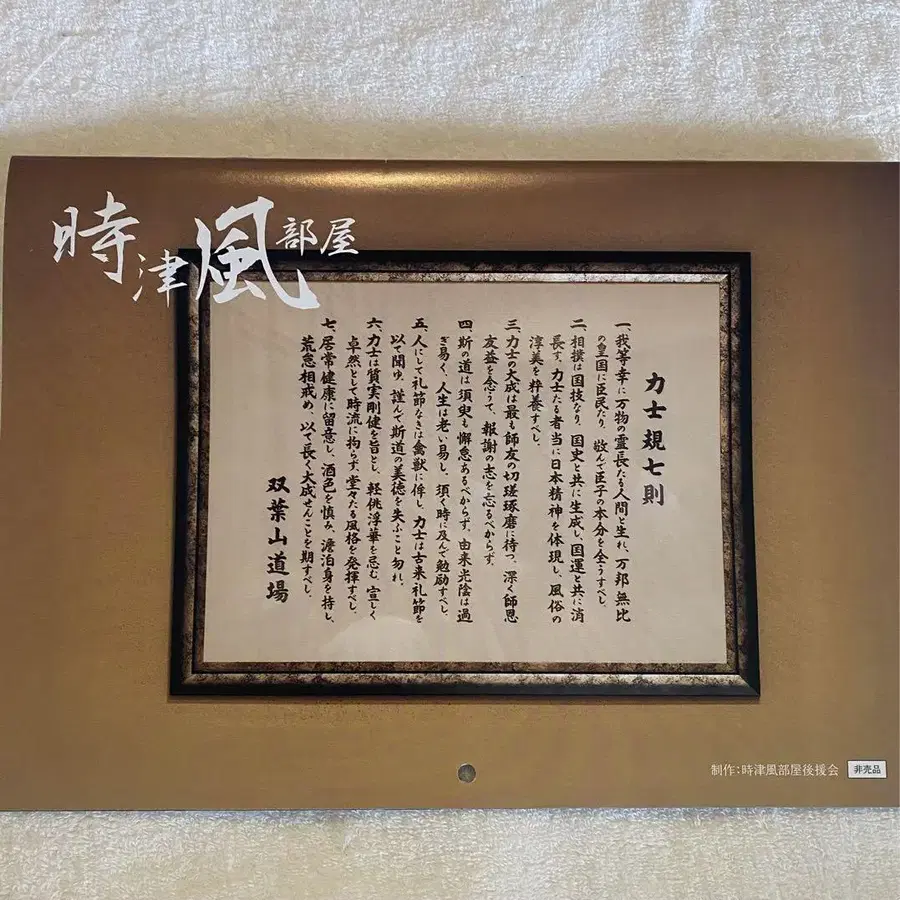 時津風部屋
力士規七則
一、我等幸に万物の霊長たる人間と生れ、万邦無比
の皇国に臣民たり、敬んで臣子の本分を全うすべし。
二、相撲は国技なり、国史と共に生成し、国運と共に消
長す。力士たる者当に日本精神を体現し、風俗の
淳美を粋養すべし。
三、力士の大成は最も師友の切瑳琢磨に待つ、深く師恩
友益を念うて、報謝の志を忘るべからず。
四、斯の道は須臾も懈怠あるべからず、由来光陰は過
ぎ易く、人生は老い易し、須く時に及んで勉励すべし。
五、人にして礼節なきは禽獣に侔し、力士は古来礼節を
以て聞ゆ、謹んで斯道の美徳を失ふこと勿れ。
六、力士は質実剛健を旨とし、軽佻浮華を忌む、宜しく
卓然として時流に拘らず、堂々たる風格を発揮すべし。
七、居常健康に留意し、酒色を慎み、澹泊身を持し、
荒怠相戒め、以て長く大成せんことを期すべし。
双葉山道場
制作:時津風部屋後援会 非売品